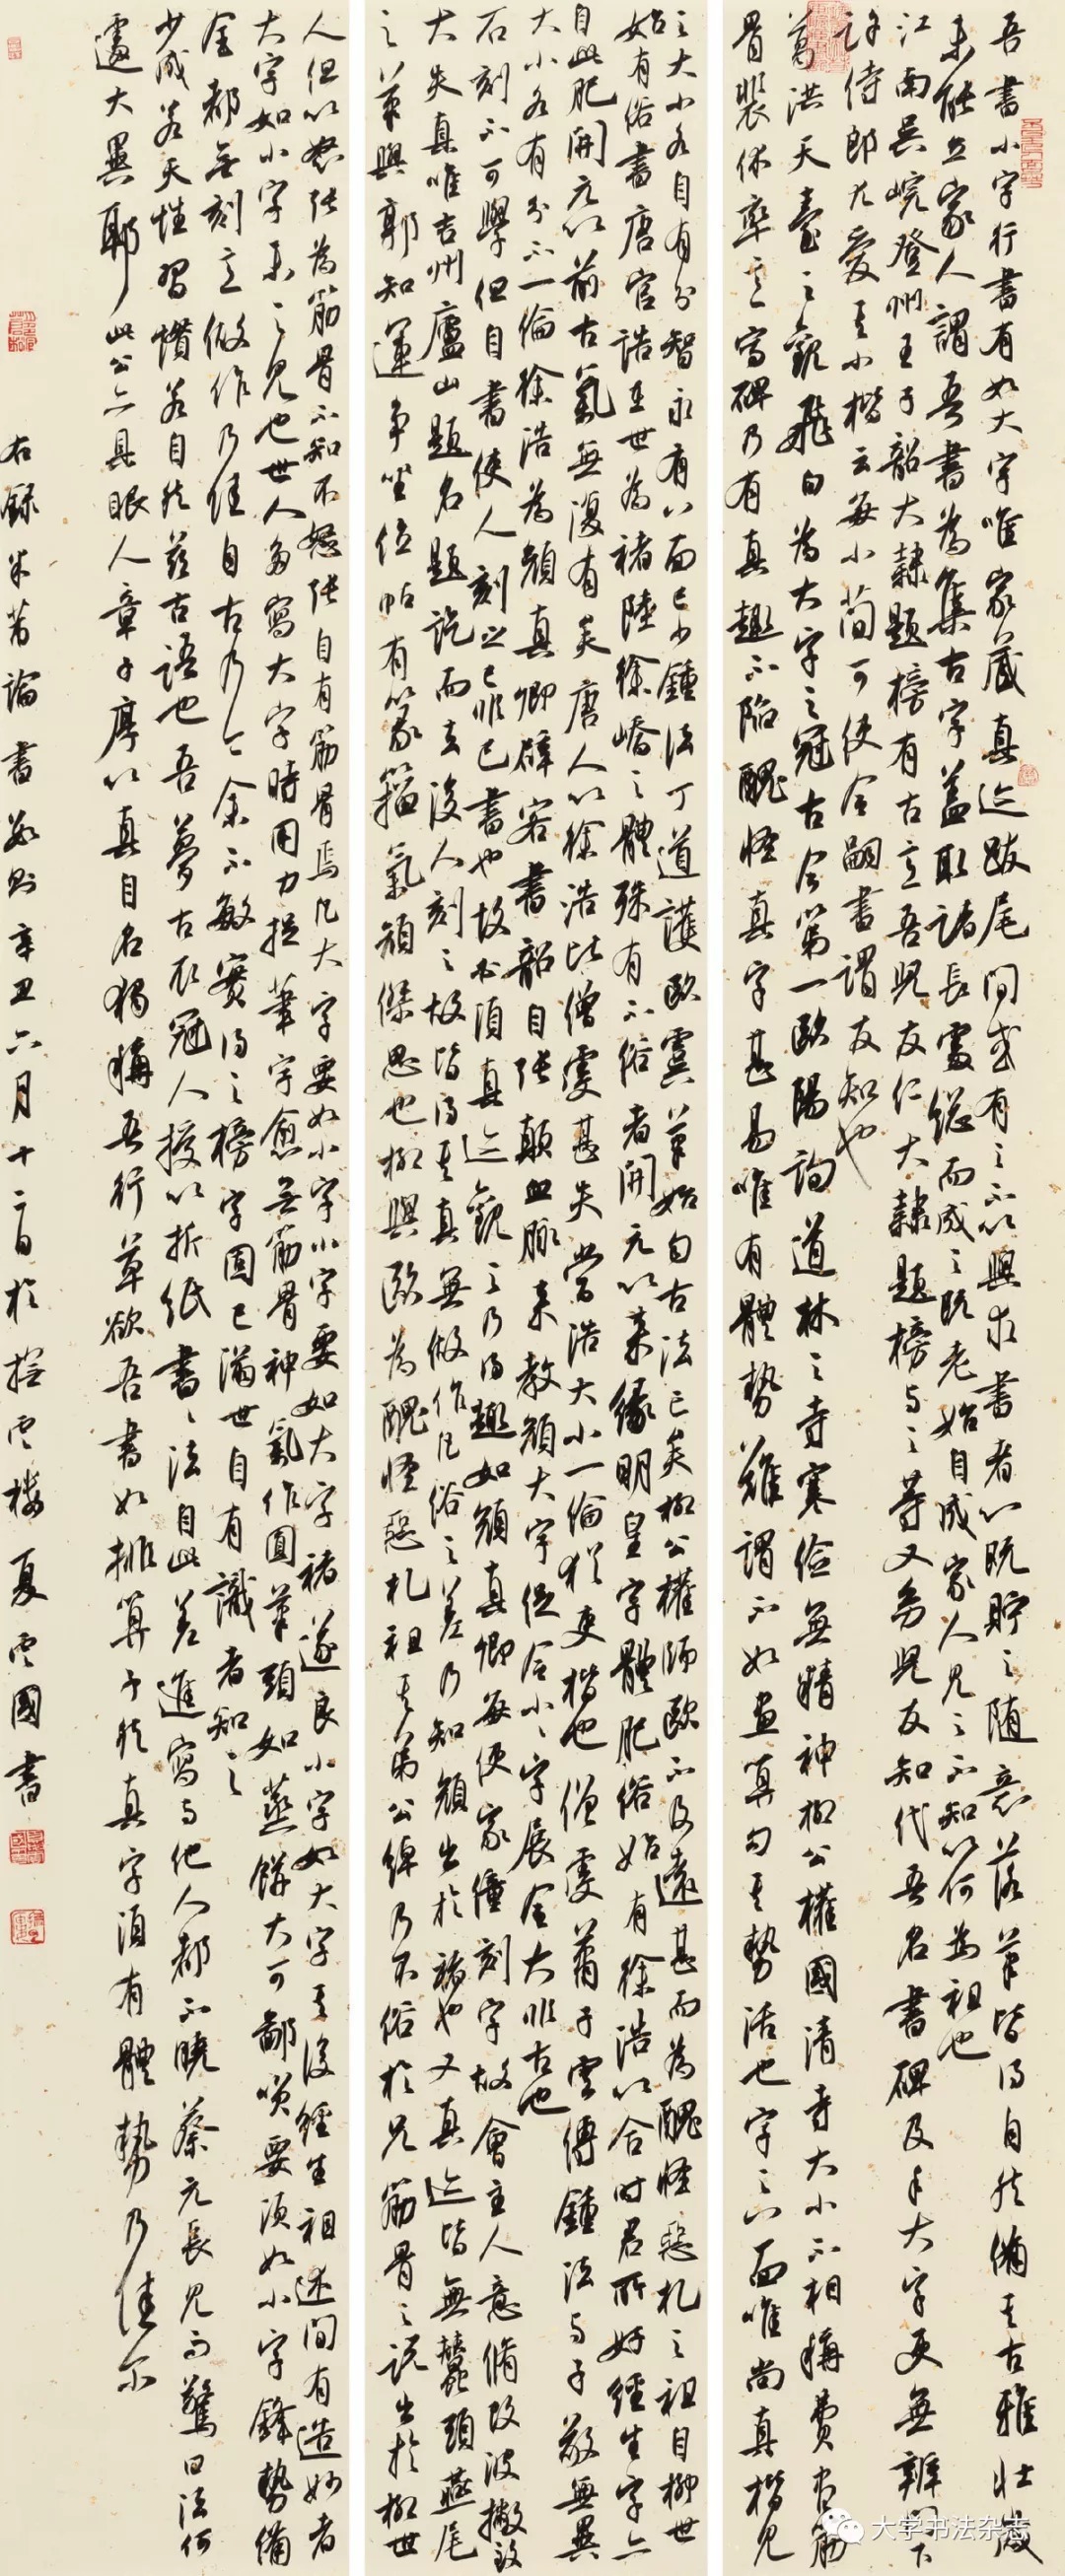 吾書小字行書有如大字唯家藏真迹跋尾間或有之不以與求書者心既貯之隨意落筆皆得自然備其古雅壯歲
未能立家人謂吾書為集古字蓋取諸長處總而成之既老始自成家人見之不知以何為祖也
江南吳皖登州王子韶大隸題榜有古意吾兒友仁大隸題榜與之等又幼兒友知代吾名書碑及手大字更無辨門下
許侍郎尤愛其小楷云每小簡可使令嗣書謂友知也
葛洪天臺之觀飛白為大字之冠古今第一歐陽詢道林之寺寒儉無精神柳公權國清寺大小不相稱費盡筋
骨裴休率意寫碑乃有真趣不陷醜怪真字甚易唯有體勢難謂不如畫算勻其勢活也字之八面唯尚真楷見
之大小各自有分智永有八面已少鍾法丁道護歐虞筆始勻古法亡矣柳公權師歐不及遠甚而為醜怪惡札之祖自柳世
始有俗書唐官誥在世為褚陸徐嶠之體殊有不俗者開元以來緣明皇字體肥俗始有徐浩以合時君所好經生字亦
自此肥開元以前古氣無復有矣唐人以徐浩比僧虔甚失當浩大小一倫猶吏楷也僧虔蕭子雲傳鍾法與子敬無異
大小各有分不一倫徐浩為顏真卿辟客書韻自張顛血脈來教顏大字促令小小字展令大非古也
石刻不可學但自書使人刻之已非己書也故必須真迹觀之乃得趣如顏真卿每使家僮刻字故會主人意修改波撇致
大失真唯吉州廬山題名題訖而去後人刻之故皆得其真無做作凡俗之差乃知顏出於褚也又真迹皆無蠶頭燕尾
之筆與郭知運爭坐位帖有篆籀氣顏傑思也柳與歐為醜怪惡札祖其弟公綽乃不俗於兄筋骨之說出於柳世
人但以怒張為筋骨不知不怒張自有筋骨焉凡大字要如小字小字要如大字褚遂良小字如大字其後經生祖述間有造妙者
大字如小字未之見也世人多寫大字時用力捉筆字愈無筋骨神氣作圓筆頭如蒸餅大可鄙笑要須如小字鋒勢備
全都無刻意做作乃佳自古乃今余不敏實得之榜字固已滿世自有識者知之
少成若天性習慣若自然茲古語也吾夢古衣冠人授以折紙書書法自此差進寫與他人都不曉蔡元長見而驚曰法何
遽大異耶此公亦具眼人章子厚以真自名獨稱吾行草欲吾書如排算子然真字須有體勢乃佳爾
右錄米芾論書數則辛丑六月十二日於挹雲樓夏雲國書
大学书法杂志